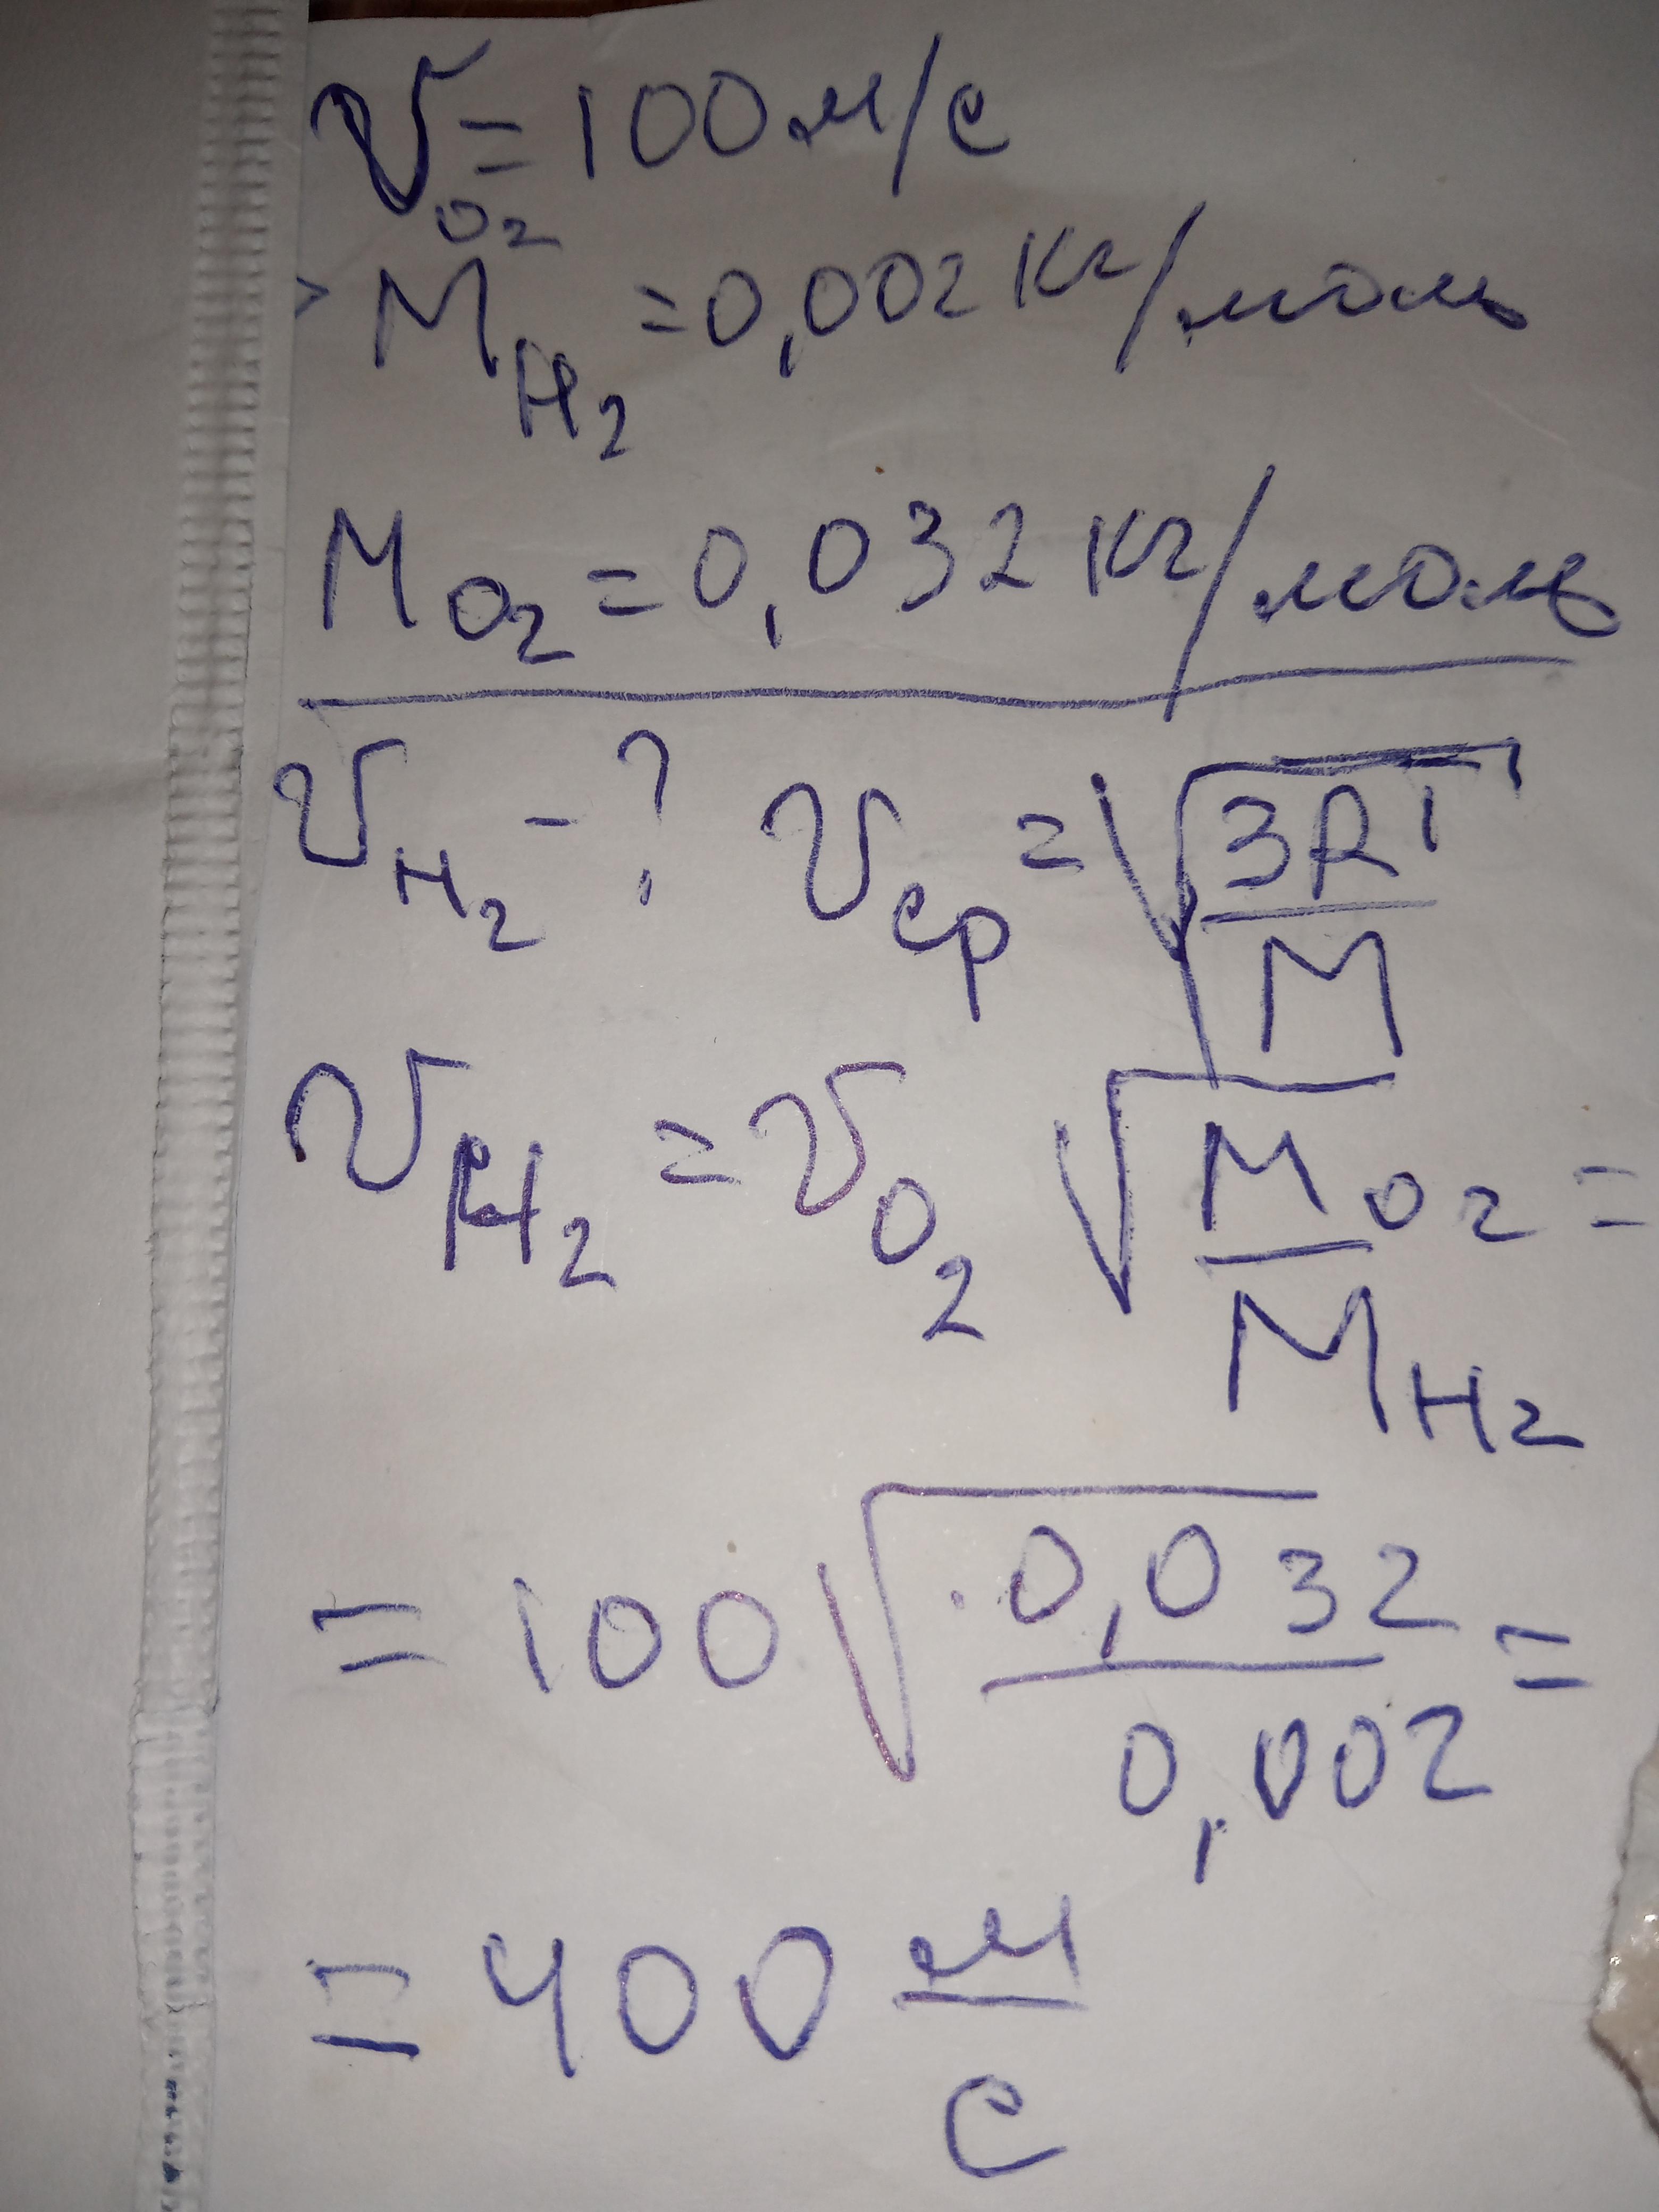 v_O2 = 100 м/с
M_H2 = 0,002 кг/моль
M_O2 = 0,032 кг/моль
v_H2 - ? v_ср = √(3RT/M)
v_H2 = v_O2 √(M_O2/M_H2) =
= 100 √(0,032/0,002) =
= 400 м/с